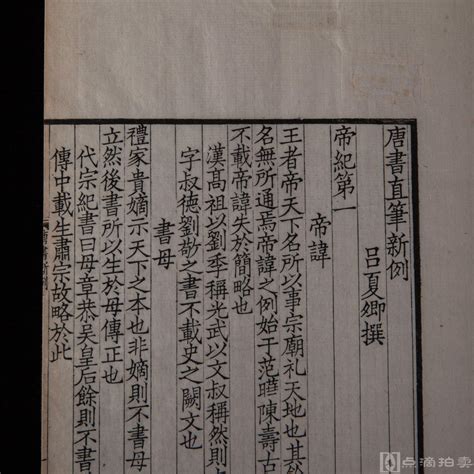 唐書直筆新例
呂夏卿撰
帝紀第一
帝諱
王者帝天下名所以事宗廟礼天地也
名無所通焉帝諱之例始于范曄陳壽古
不載帝諱失於簡略也
漢髙祖以劉季稱光武以文叔稱然則
字叔德劉之書不載史之闕文也
書母
禮家貴嫡示天下之本也非嫡則不書母
立然後書所以生於母傳正也
代宗紀書曰母章恭吳皇后餘則不書
傳中載生肅宗故略於此
点滴拍卖